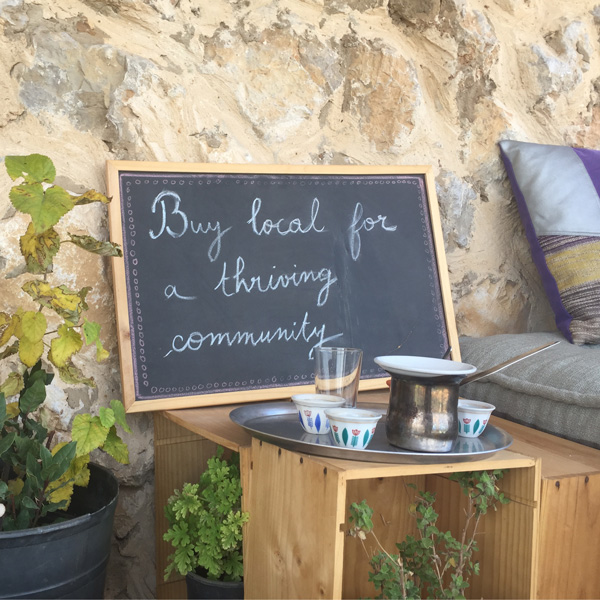 Buy local for
a thriving
community